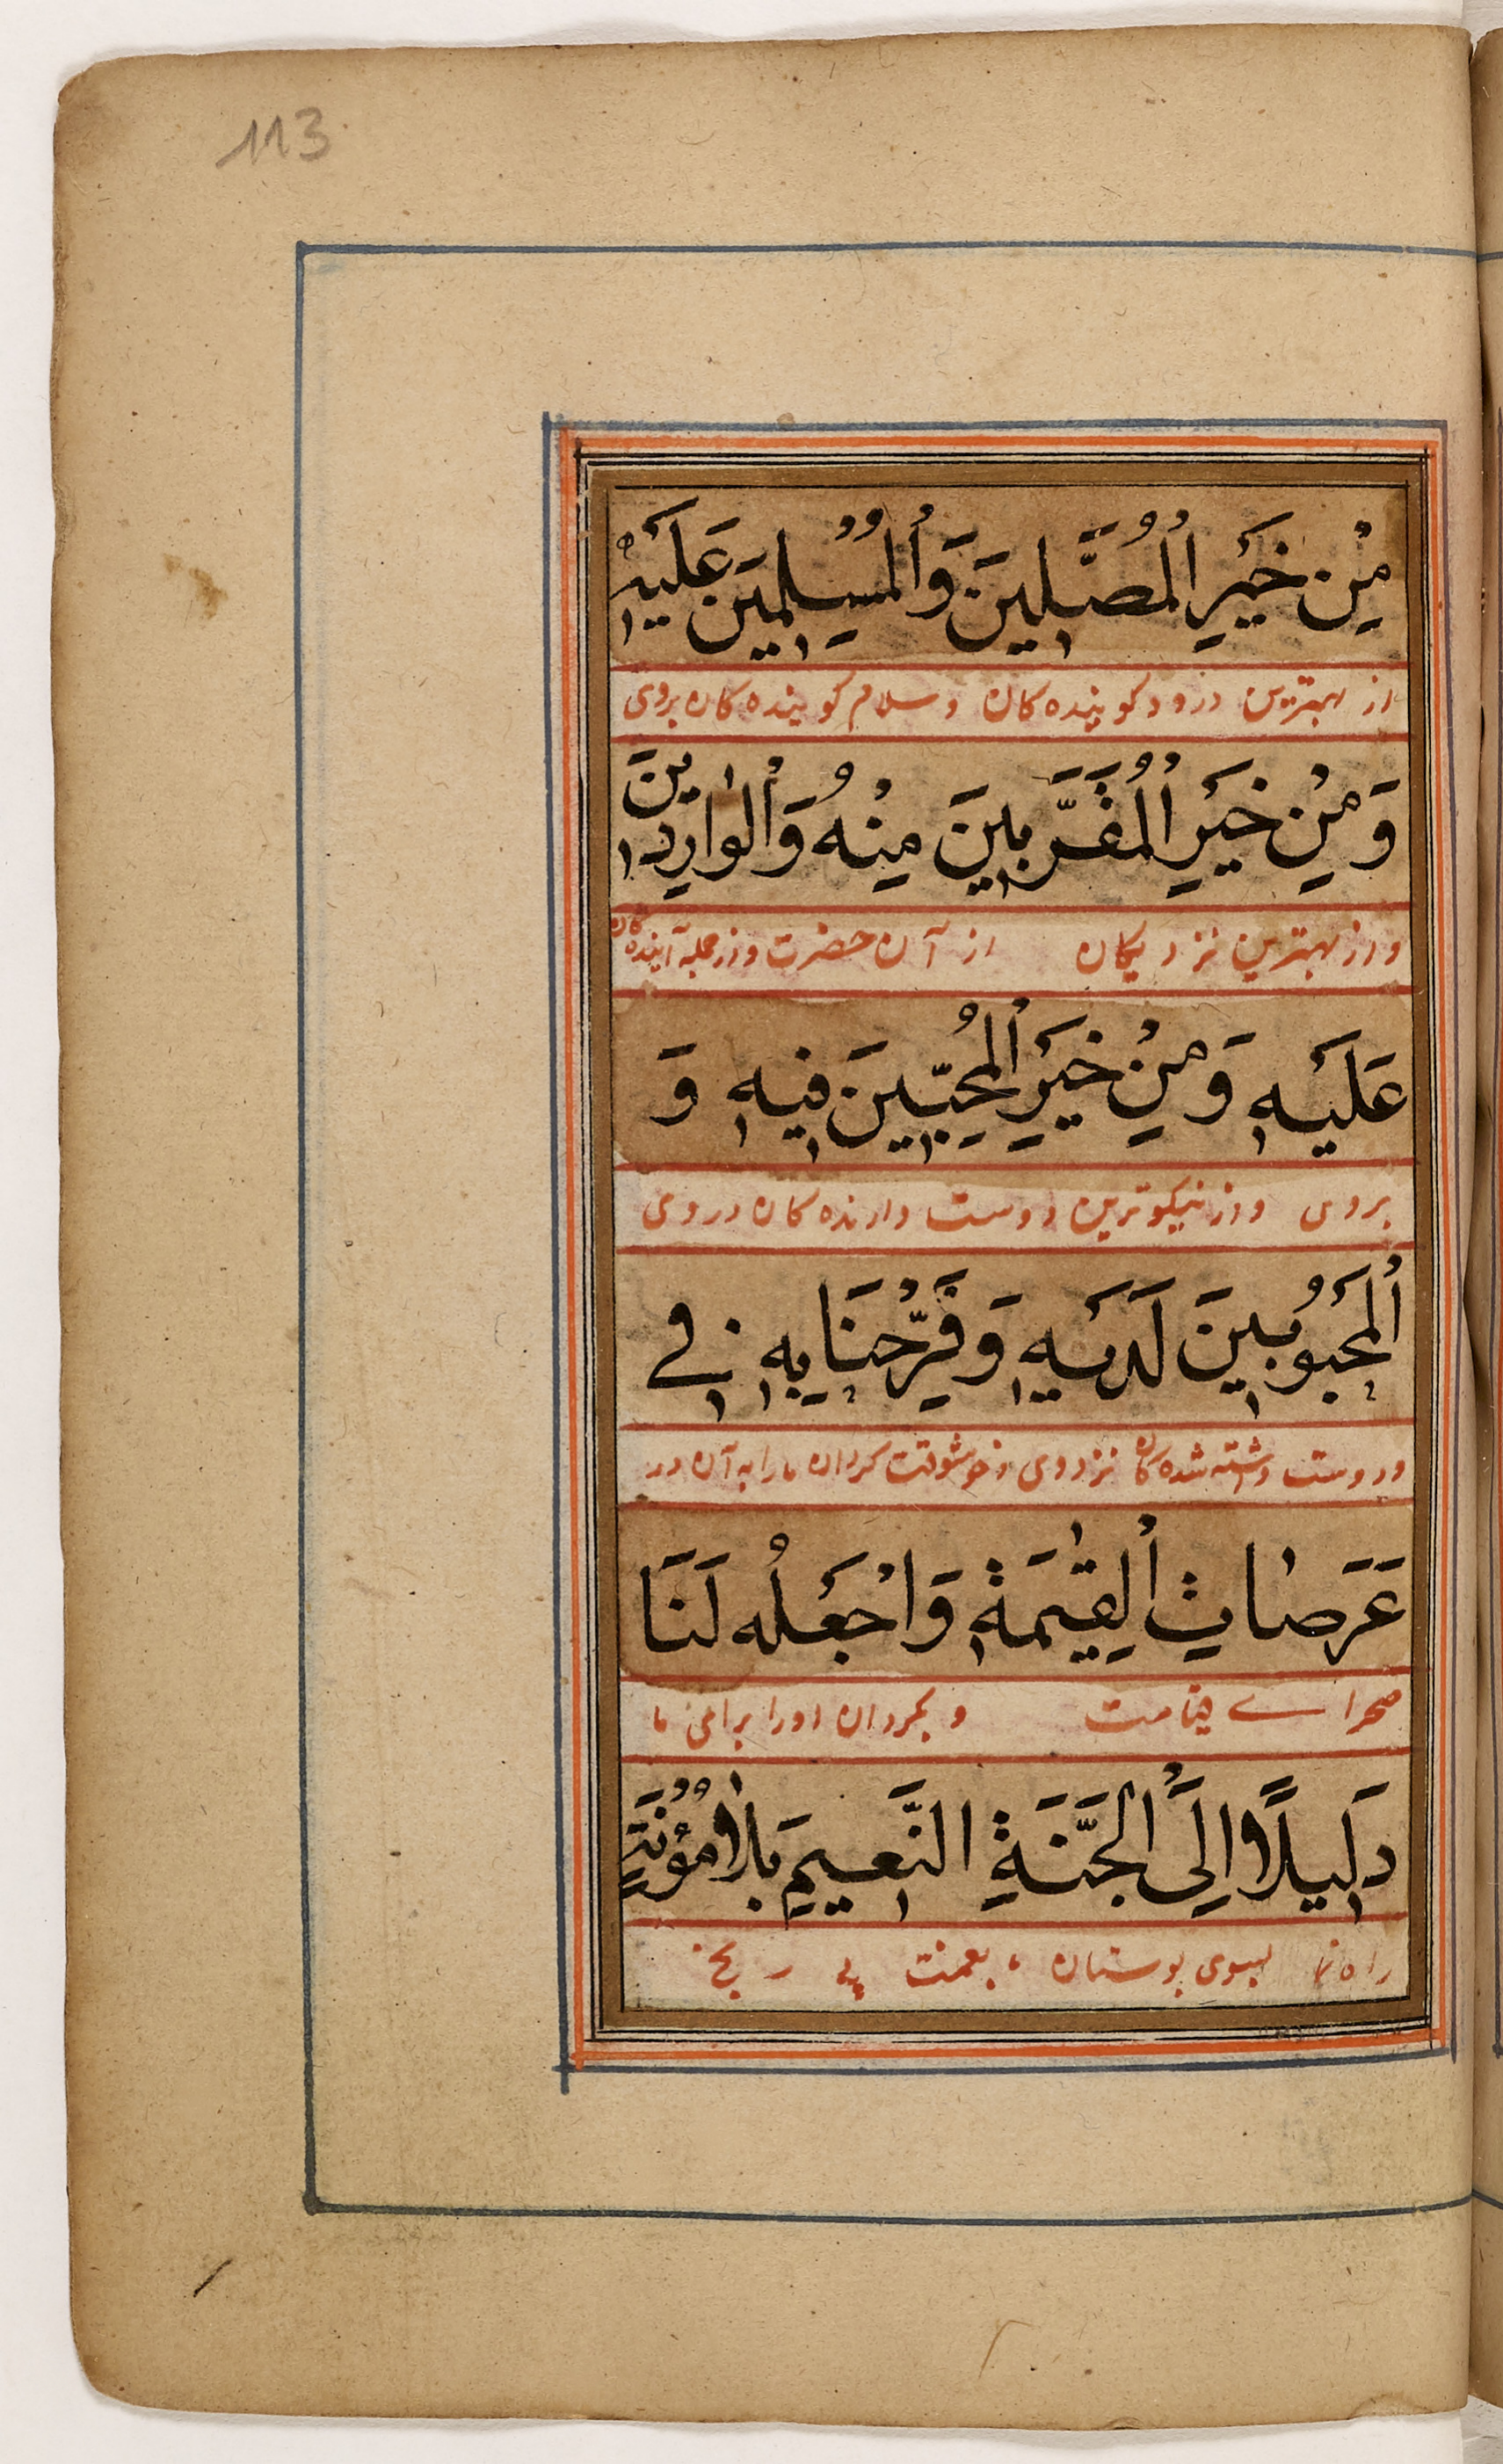 113
مِنْ خَيْرِ الْمُصَلِّينَ وَالْمُسِلِمِينَ عَلَيْهِ
از بهترین درود کوینده کان و سلام کوینده کان بروی
وَمِنْ خَيْرِ الْمُقَرَّبِينَ مِنْهُ وَالْوَارِدِينَ
و از بهترین نزدیکان از آن حضرت و از جمله آینده کان
عَلَيْهِ وَمِنْ خَيْرِ الْمُحِبِّينَ فِيهِ وَ
بروی و از نیکوترین دوست دارنده کان در وی
الْمَحْبُوبِينَ لَدَيْهِ وَفَرِّحْنَا بِهِ فِي
و دوست داشته شده کان نزد وی و خوشوقت کردان ما را به آن در
عَرَصَاتِ الْقِيٰمَةِ وَاجْعَلْهُ لَنَا
صحرای قیامت و بکردان او را برای ما
دَلِيلًا اِلَى الْجَنَّةِ النَّعِيمِ بِلَا مُؤْنَةٍ
راه نما بسوی بوستان با نعمت بی رنج